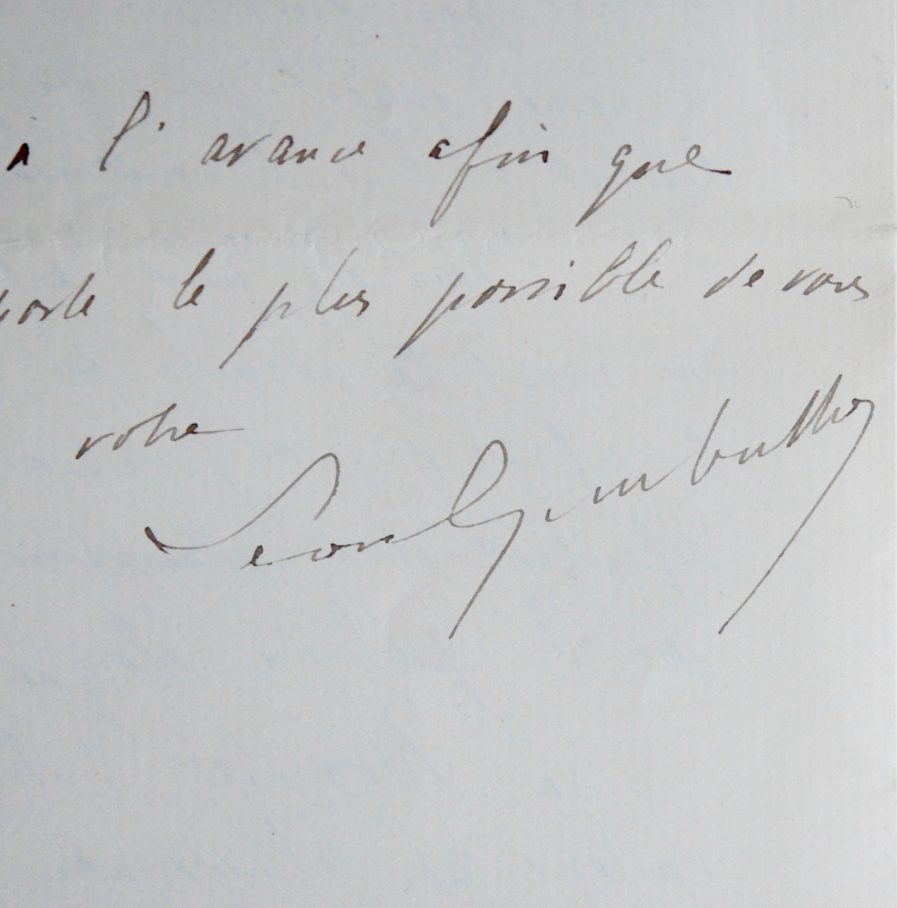 à l'avance afin que
le plus possible de vous
votre
Leon Gambetta